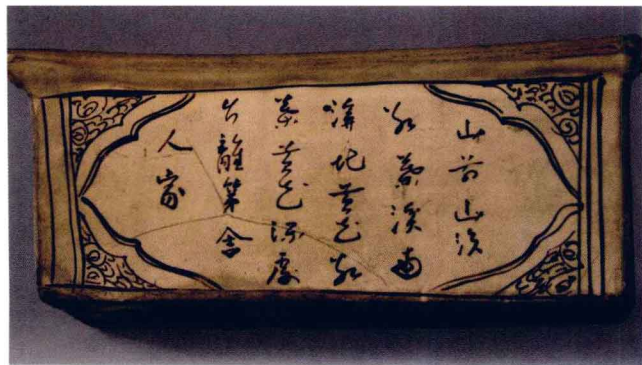 山前山後
紅葉溪南
溪北黄花紅
葉黄花深處
竹離茅舍
人家